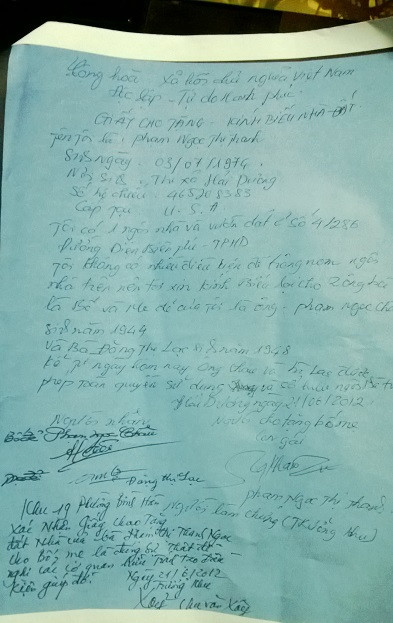 Cộng hoà xã hội chủ nghĩa Việt Nam
Độc lập - Tự do Hạnh phúc
GIẤY CHO TẶNG - KÍNH BIẾU NHÀ ĐẤT
Tên tôi là: phạm Ngọc Thị Thanh
Sinh ngày: 03/07/1974
Nơi sinh: Thị xã Hải Dương
Số hộ chiếu: 465708383
Cấp tại: U.S.A
Tôi có 1 ngôi nhà và vườn đất ở số 4/286
Đường Điện Biên phủ - TPHD
Tôi không có nhiều điều kiện để trông nom ngôi
nhà trên nên tôi xin kính biếu lại cho
là Bố và mẹ đẻ của tôi là ông - phạm Ngọc Ch
Sinh năm 1944
Và Bà Đặng Thị Lạc sinh năm 1948
kể từ ngày hôm nay ông và Lạc được
phép toàn quyền sử dụng và
Hải Dương ngày 21/06/2012
Người nhận
Người cho tặng bố mẹ
Bố đẻ Phạm Ngọc
Con gái
Đặng Thị Lạc
phạm Ngọc Thị Thanh
Khu 19 Phường Bình Hàn
Người làm chứng (Trưởng khu)
Xác Nhận
đất Nhà của bà Phạm Thị Thanh Ngọc
cho Bố, mẹ là đúng sự thật đề
nghị các cơ quan
kiện giúp đỡ.
Ngày 21/6/2012
Trưởng khu
Chu văn